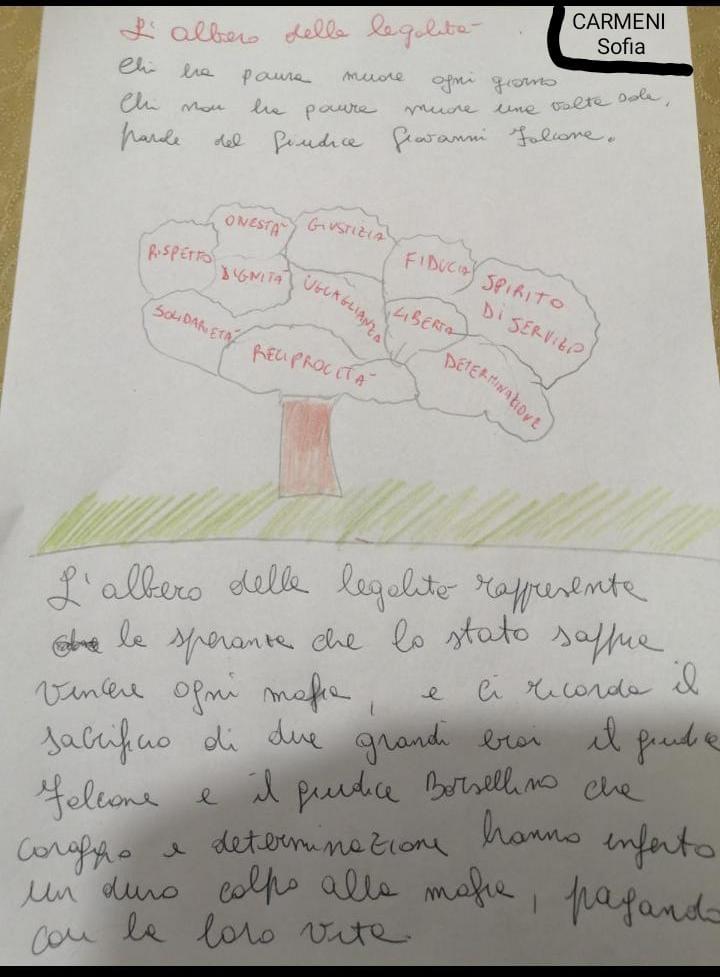 L'albero della legalità.
CARMENI
Sofia
Chi ha paura muore ogni giorno
Chi non ha paura muore una volta sola,
parole del Giudice Giovanni Falcone.
ONESTÀ
GIUSTIZIA
RISPETTO
DIGNITÀ
FIDUCIA
SPIRITO
DI SERVIZIO
UGUAGLIANZA
LIBERTÀ
SOLIDARIETÀ
RECIPROCITÀ
DETERMINAZIONE
L'albero della legalità rappresenta
la speranza che lo stato sappia
vincere ogni mafia, e ci ricorda il
sacrificio di due grandi eroi il giudice
Falcone e il giudice Borsellino che
coraggio e determinazione hanno inferto
un duro colpo alla mafia, pagando
con la loro vita.